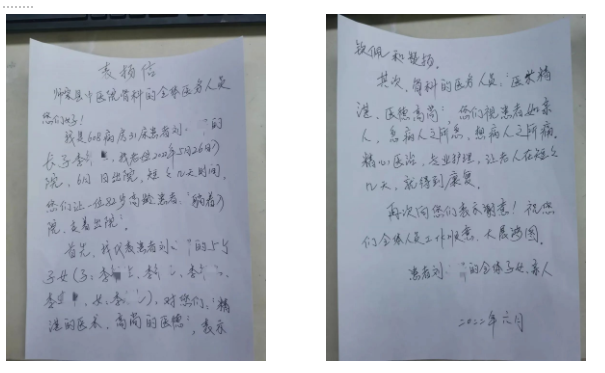 表扬信
师宗县中医院骨科的全体医务人员
您们好！
我是608病房31床患者刘
长子李 ，我老母2022年5月26日入
院，6月 日出院，短短几天时间，
您们让一位82岁高龄患者，"躺着入
院，走着出院"。
首先，我代表患者刘 的5个
子女（子：李 、李 、李 、
李 、女：李 ），对您们，"精
湛的医术，高尚的医德"，表示
钦佩和赞扬。
其次，骨科的医务人员，"医术精
湛，医德高尚"，您们视患者如亲
人，急病人之所急，想病人之所痛，
精心医治，专业护理，让老人在短短
几天，就得到康复。
再次向您们表示谢意！祝您
们全体人员工作顺意，大展鸿图。
患者刘 的全体子女、亲人
2022年六月